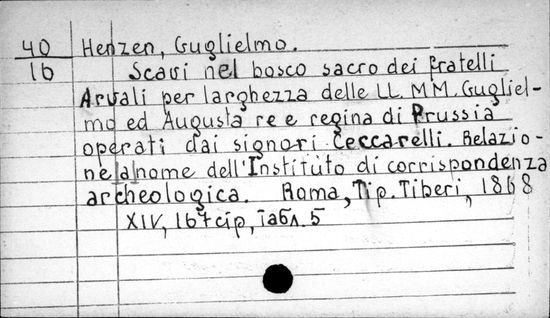 40 Henzen, Guglielmo.
16 Scavi nel bosco sacro dei fratelli
Arvali per larghezza delle LL. MM. Gugliel-
mo ed Augusta re e regina di Prussia
operati dai signori Ceccarelli. Relazio-
ne a nome dell'Instituto di corrispondenza
archeologica. Roma, Tip. Tiberi, 1868
XIV, 107 стр, табл. 5